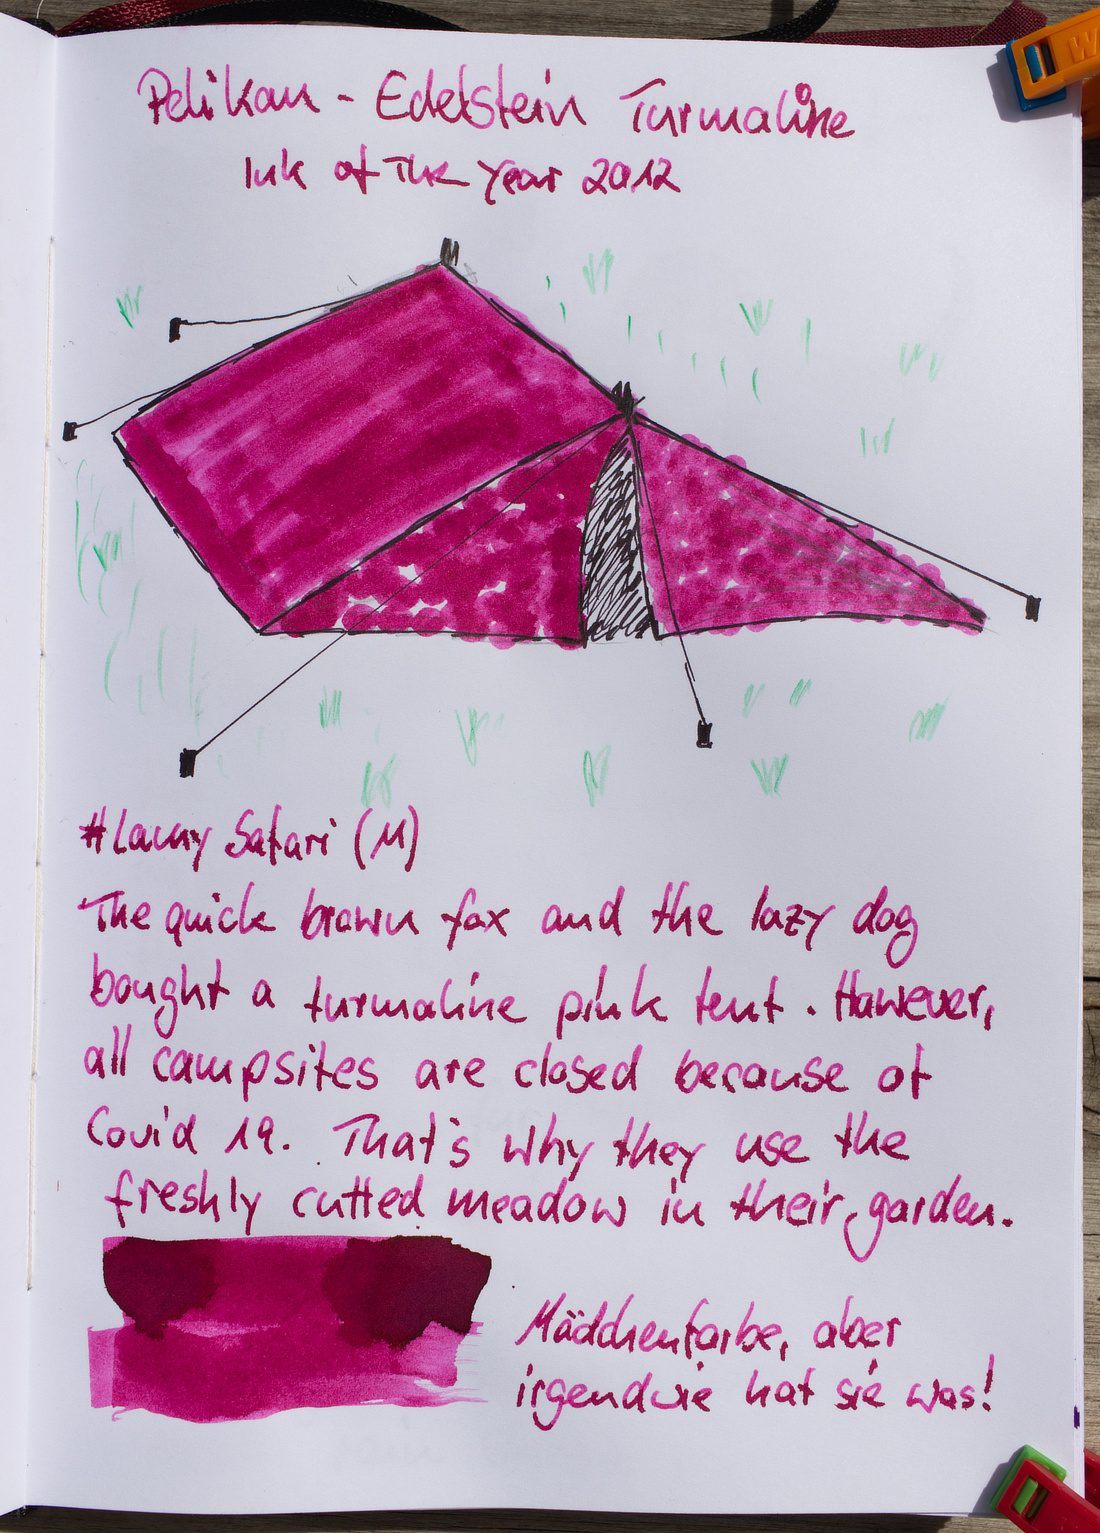 Pelikan - Edelstein Turmaline
Ink of The Year 2012
#Lamy Safari (M)
The quick brown fox and the lazy dog
bought a turmaline pink tent. However,
all campsites are closed because of
Covid 19. That's why they use the
freshly cutted meadow in their garden.
Mädchenfarbe, aber
irgendwie hat sie was!